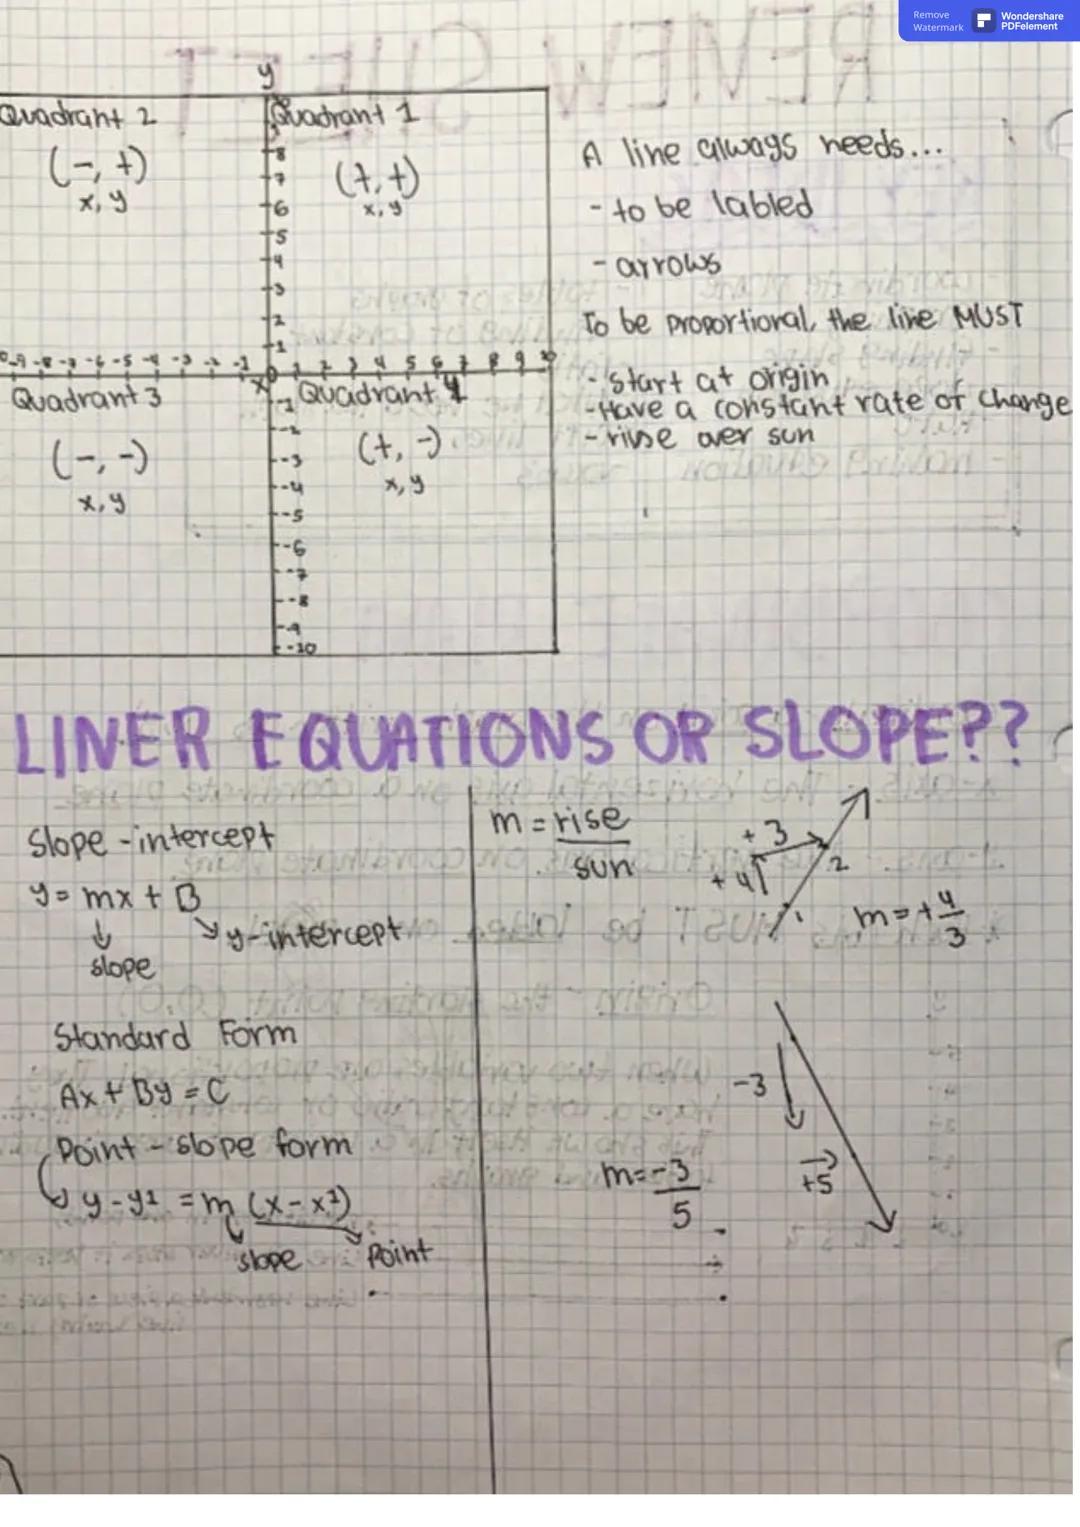 Remove
Watermark
Wondershare
PDFelement
REVIEW SHEET
y
Quadrant 2
(-, +)
x, y
Quadrant 1
(+, +)
x, y
8
7
6
5
4
3
2
1
-9 -8 -7 -6 -5 -4 -3 -2 -1 0 1 2 3 4 5 6 7 8 9 10
x
Quadrant 3
(-, -)
x, y
Quadrant 4
(+, -)
x, y
-1
-2
-3
-4
-5
-6
-7
-8
-9
-10
A line always needs...
- to be labled
- arrows
To be proportional, the line MUST
- start at origin
- Have a constant rate of change
- rivse over sun
LINER EQUATIONS OR SLOPE??
Slope - intercept
y = mx + B
slope
y-intercept
Standard Form
Ax + By = C
Point - slope form
y - y1 = m (x - x1)
slope
Point
m = rise
sun
+ 3
+ 4
2
1
m = + 4
3
-3
+5
m = -3
5